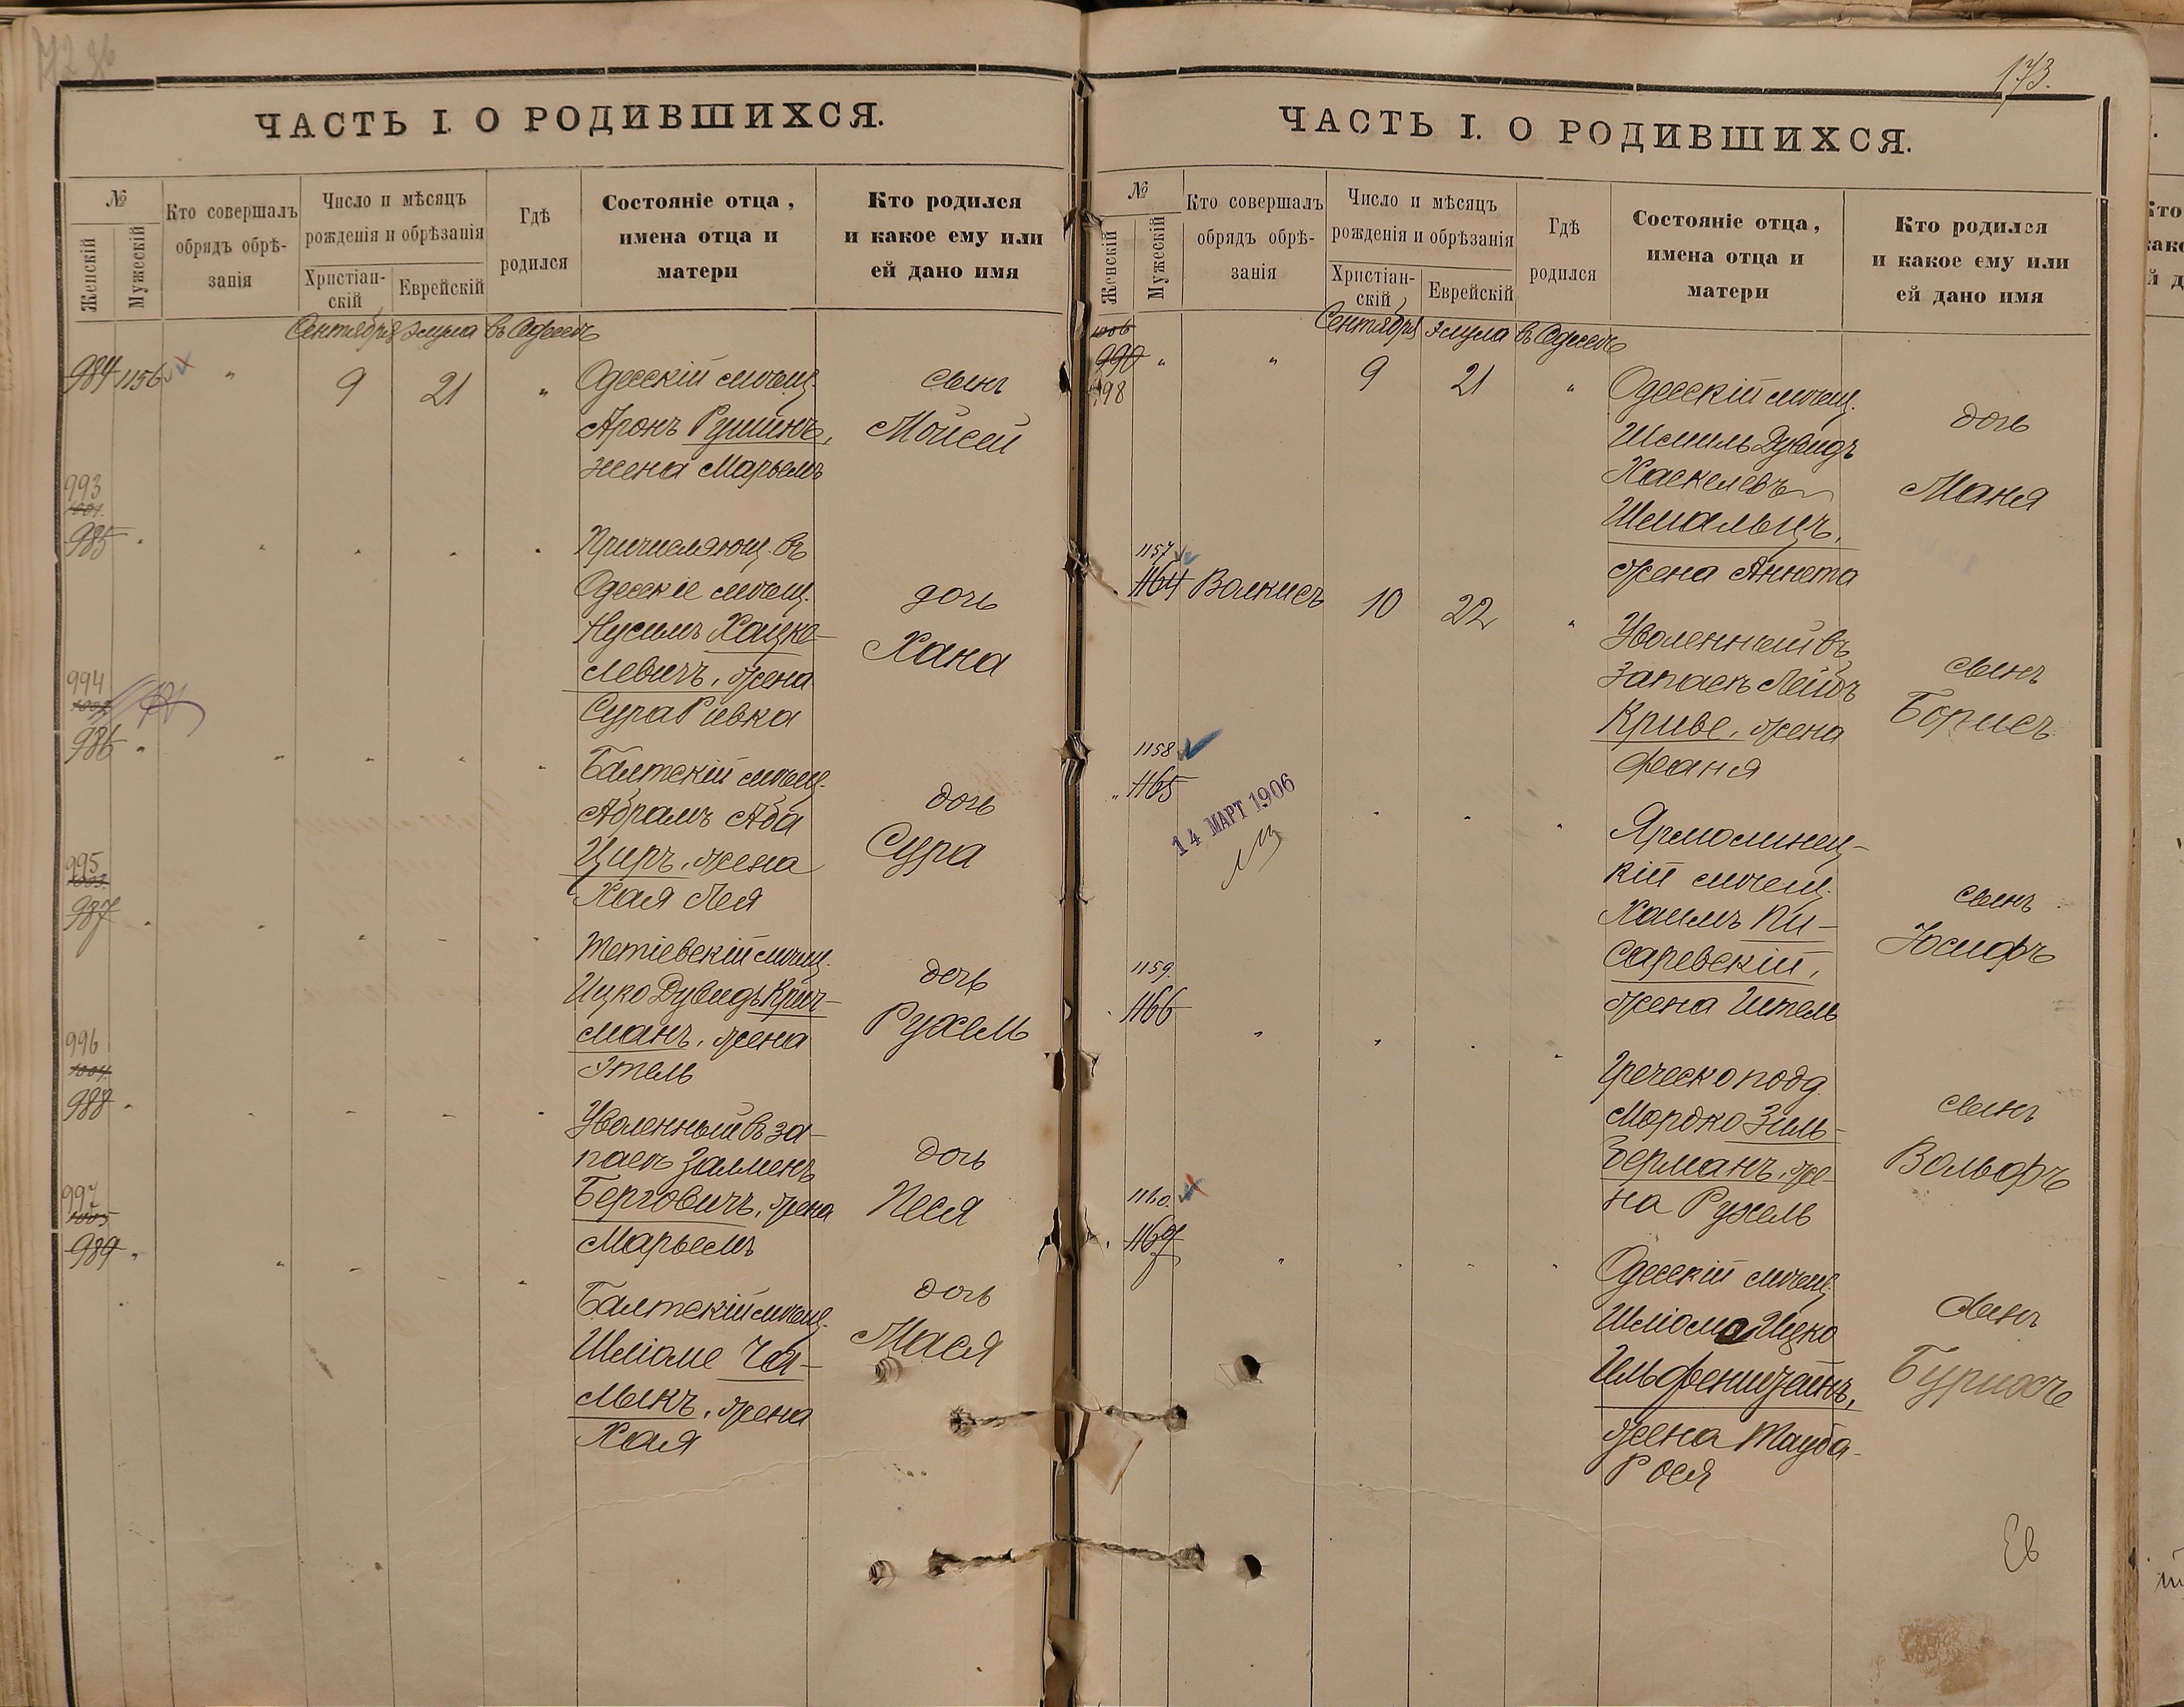 173.
ЧАСТЬ I. О РОДИВШИХСЯ.
№
Женскій
Мужескій
Кто совершалъ
обрядъ обрѣ-
занія
Число и мѣсяцъ
рожденія и обрѣзанія
Христіан-
скій
Еврейскій
Гдѣ
родился
Состояніе отца,
имена отца и
матери
Кто родился
и какое ему или
ей дано имя
Сентября Элула въ Одессѣ
984 1156 " 9 21 "
Одесскій мѣщ.
Аронъ
жена Марьемъ
сынъ
Моисей
993
1001.
985
Причисляющ. въ
Одесскіе мѣщ.
Нусимъ Хацке-
левичъ, жена
Сура Ривка
дочь
Хана
994
1002
986
Балтскій мѣщ.
Абрамъ Аба
Циръ, жена
Хая Лея
дочь
Сура
995
1003.
987
Тетіевскій мѣщ.
Ицко Дувидъ Крич-
манъ, жена
Этель
дочь
Рухель
996
1004.
988
Уволенный въ за-
пасъ Залменъ
Берговичъ, жена
Марьемъ
дочь
Песя
997
1005
989
Балтскій мѣщ.
Шліоме Ча-
мыкъ, жена
Хая
дочь
Мася
ЧАСТЬ I. О РОДИВШИХСЯ.
№
Женскій
Мужескій
Кто совершалъ
обрядъ обрѣ-
занія
Число и мѣсяцъ
рожденія и обрѣзанія
Христіан-
скій
Еврейскій
Гдѣ
родился
Состояніе отца,
имена отца и
матери
Кто родился
и какое ему или
ей дано имя
Сентября Элула въ Одессѣ
1006
990 " " 9 21 "
998
Одесскій мѣщ.
Шмиль Дувидъ
Хаскелевъ
Шмальцъ,
жена Аннета
дочь
Маня
1157
1164 Волкисъ 10 22 "
Уволенный въ
запасъ Лейбъ
Криве, жена
Фаня
сынъ
Борисъ
1158
1165
14 МАРТ 1906
Ярмолинец-
кій мѣщ.
Хаимъ Пи-
саревскій,
жена Итель
сынъ
Іосифъ
1159.
1166
Греческо подд.
Мордко Зиль-
берманъ, же-
на Рухель
сынъ
Вольфъ
1160.
1167
Одесскій мѣщ.
Шліома Ицко
Гельфенштейнъ,
жена Тауба-
Рося
сынъ
Бурихъ